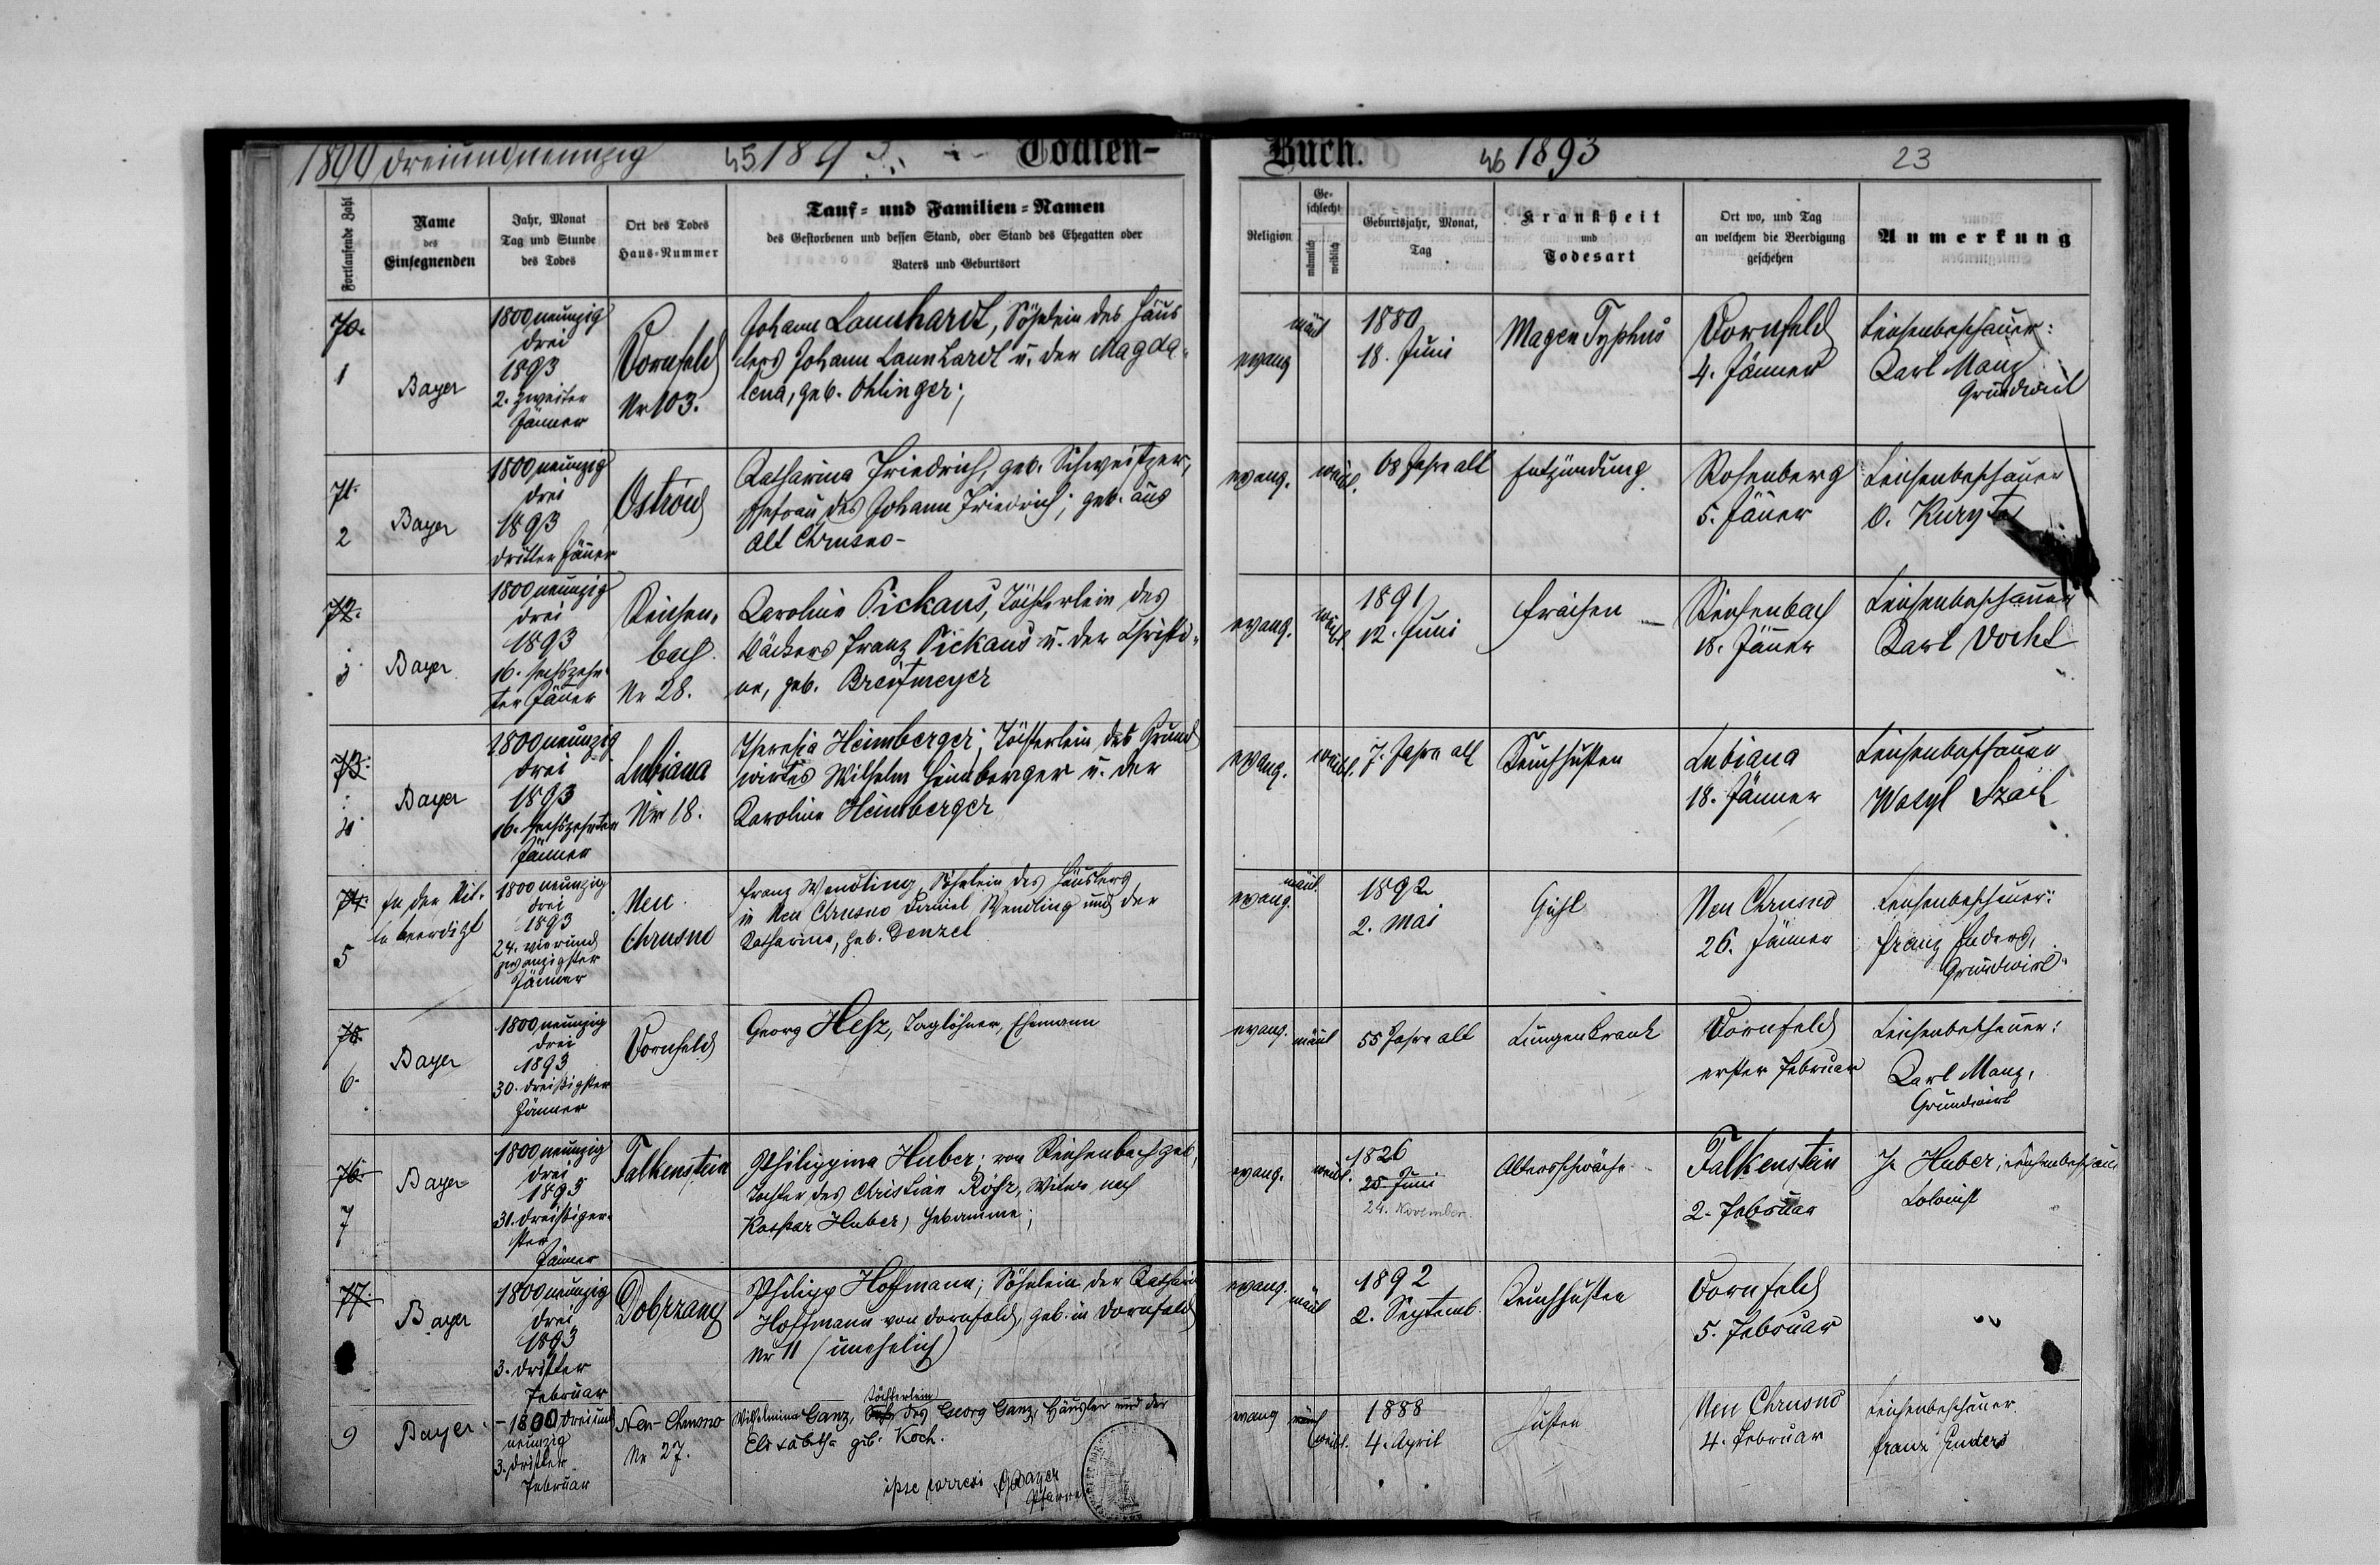 1800 dreiundneunzig 45 1893. Todten-
Buch. 46 1893 23
Fortlaufende Zahl
Name
des
Einsegnenden
Jahr, Monat
Tag und Stunde
des Todes
Ort des Todes
Haus-Nummer
Tauf- und Familien-Namen
des Gestorbenen und dessen Stand, oder Stand des Ehegatten oder
Vaters und Geburtsort
Religion
Ge-
schlecht
männlich
weiblich
Geburtsjahr, Monat,
Tag
Krankheit
und
Todesart
Ort wo, und Tag
an welchem die Beerdigung
geschehen
Anmerkung
70.
1
Bayer
1800 neunzig
drei
1893
2. zweiter
Jänner
Dornfeld
Nr 103.
Johann Lannhardt, Söhnlein des Häus
lers Johann Lannhardt u. der Magda-
lena, geb. Ohlinger;
evang
mänl
1880
18. Juni
Magen Typhus
Dornfeld
4. Jänner
Leichenbeschauer:
Karl Manz
Grundwirt
71.
2
Bayer
1800 neunzig
drei
1893
dritter Jänner
Ostrów
Katharina Friedrich, geb. Schweitzer,
Ehefrau des Johann Friedrich; geb. aus
Alt Chrusno-
evang.
weibl.
68 Jahre alt
Entzündung
Rosenberg
5. Jänner
Leichenbeschauer
O. Kuryta
72.
3
Bayer
1800 neunzig
drei
1893
16. sechszehn-
ter Jänner
Reichen-
bach
Nr 28.
Karoline Pickaus, Töchterlein des
Bäckers Franz Pickaus u. der Christi-
ne, geb. Breitmeyer
evang.
weibl.
1891
12. Juni
Fraisen
Reichenbach
18. Jänner
Leichenbeschauer
Karl Vocht
73.
4
Bayer
1800 neunzig
drei
1893
16. sechszehnter
Jänner
Lubiana
Nr 18.
Theresia Heimberger; Töchterlein des Grund
wirtes Wilhelm Heimberger u. der
Karoline Heimberger
evang.
weibl.
7. Jahre alt
Keuchhusten
Lubiana
18. Jänner
Leichenbeschauer
Wasyl
74.
5
In der Stil-
le beerdigt
1800 neunzig
drei
1893
24. vierund
zwanzigster
Jänner
Neu
Chrusno
Franz Wendling, Söhnlein des Häuslers
in Neu Chrusno Daniel Wendling und der
Katharina, geb. Denzel
evang.
mänl
1892
2. Mai
Gicht
Neu Chrusno
26. Jänner
Leichenbeschauer:
Franz Enders,
Grundwirt
75.
6.
Bayer
1800 neunzig
drei
1893
30. dreißigster
Jänner
Dornfeld
Georg Hesz, Taglöhner, Ehemann
evang.
mänl
55 Jahre alt
Lungenkrank
Dornfeld
erster Februar
Leichenbeschauer:
Karl Manz,
Grundwirt
76.
7
Bayer
1800 neunzig
drei
1893
31. dreißiger-
ster
Jänner
Falkenstein
Philippina Huber; von Reichenbach geb,
Tochter des Christian Röhr, Witwe nach
Kaspar Huber, Hebamme;
evang.
weibl.
1826
25 Juni
24. November.
Altersschwäche
Falkenstein
2. Februar
J. Huber, Leichenbeschau
Kolonist
77.
Bayer
1800 neunzig
drei
1893
3. dritter
Februar
Dobrzany
Philipp Hoffmann; Söhnlein der Kathari
Hoffmann von Dornfeld, geb. in Dornfeld
Nr 11 (unehelich)
evang.
mänl
1892
2. Septemb.
Keuchhusten
Dornfeld
5. Februar
9
Bayer
1800 dreiund
neunzig
3. dritter
Februar
Neu-Chrusno
Nr 27.
Töchterlein
Wilhelmina Ganz, des Georg Ganz, Häusler und der
Elisabetha geb. Koch.
evang
weibl.
1888
4. April
Husten
Neu Chrusno
4. Februar
Leichenbeschauer
Franz Enders
ipse correxi Bayer
Pfarrer